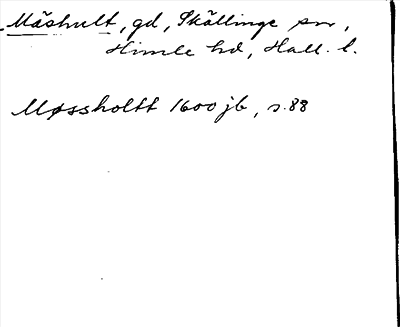 Mäshult, gd, Skällinge sn,
Himle hd, Hall. l.
Møssholtt 1600 jb, s. 88